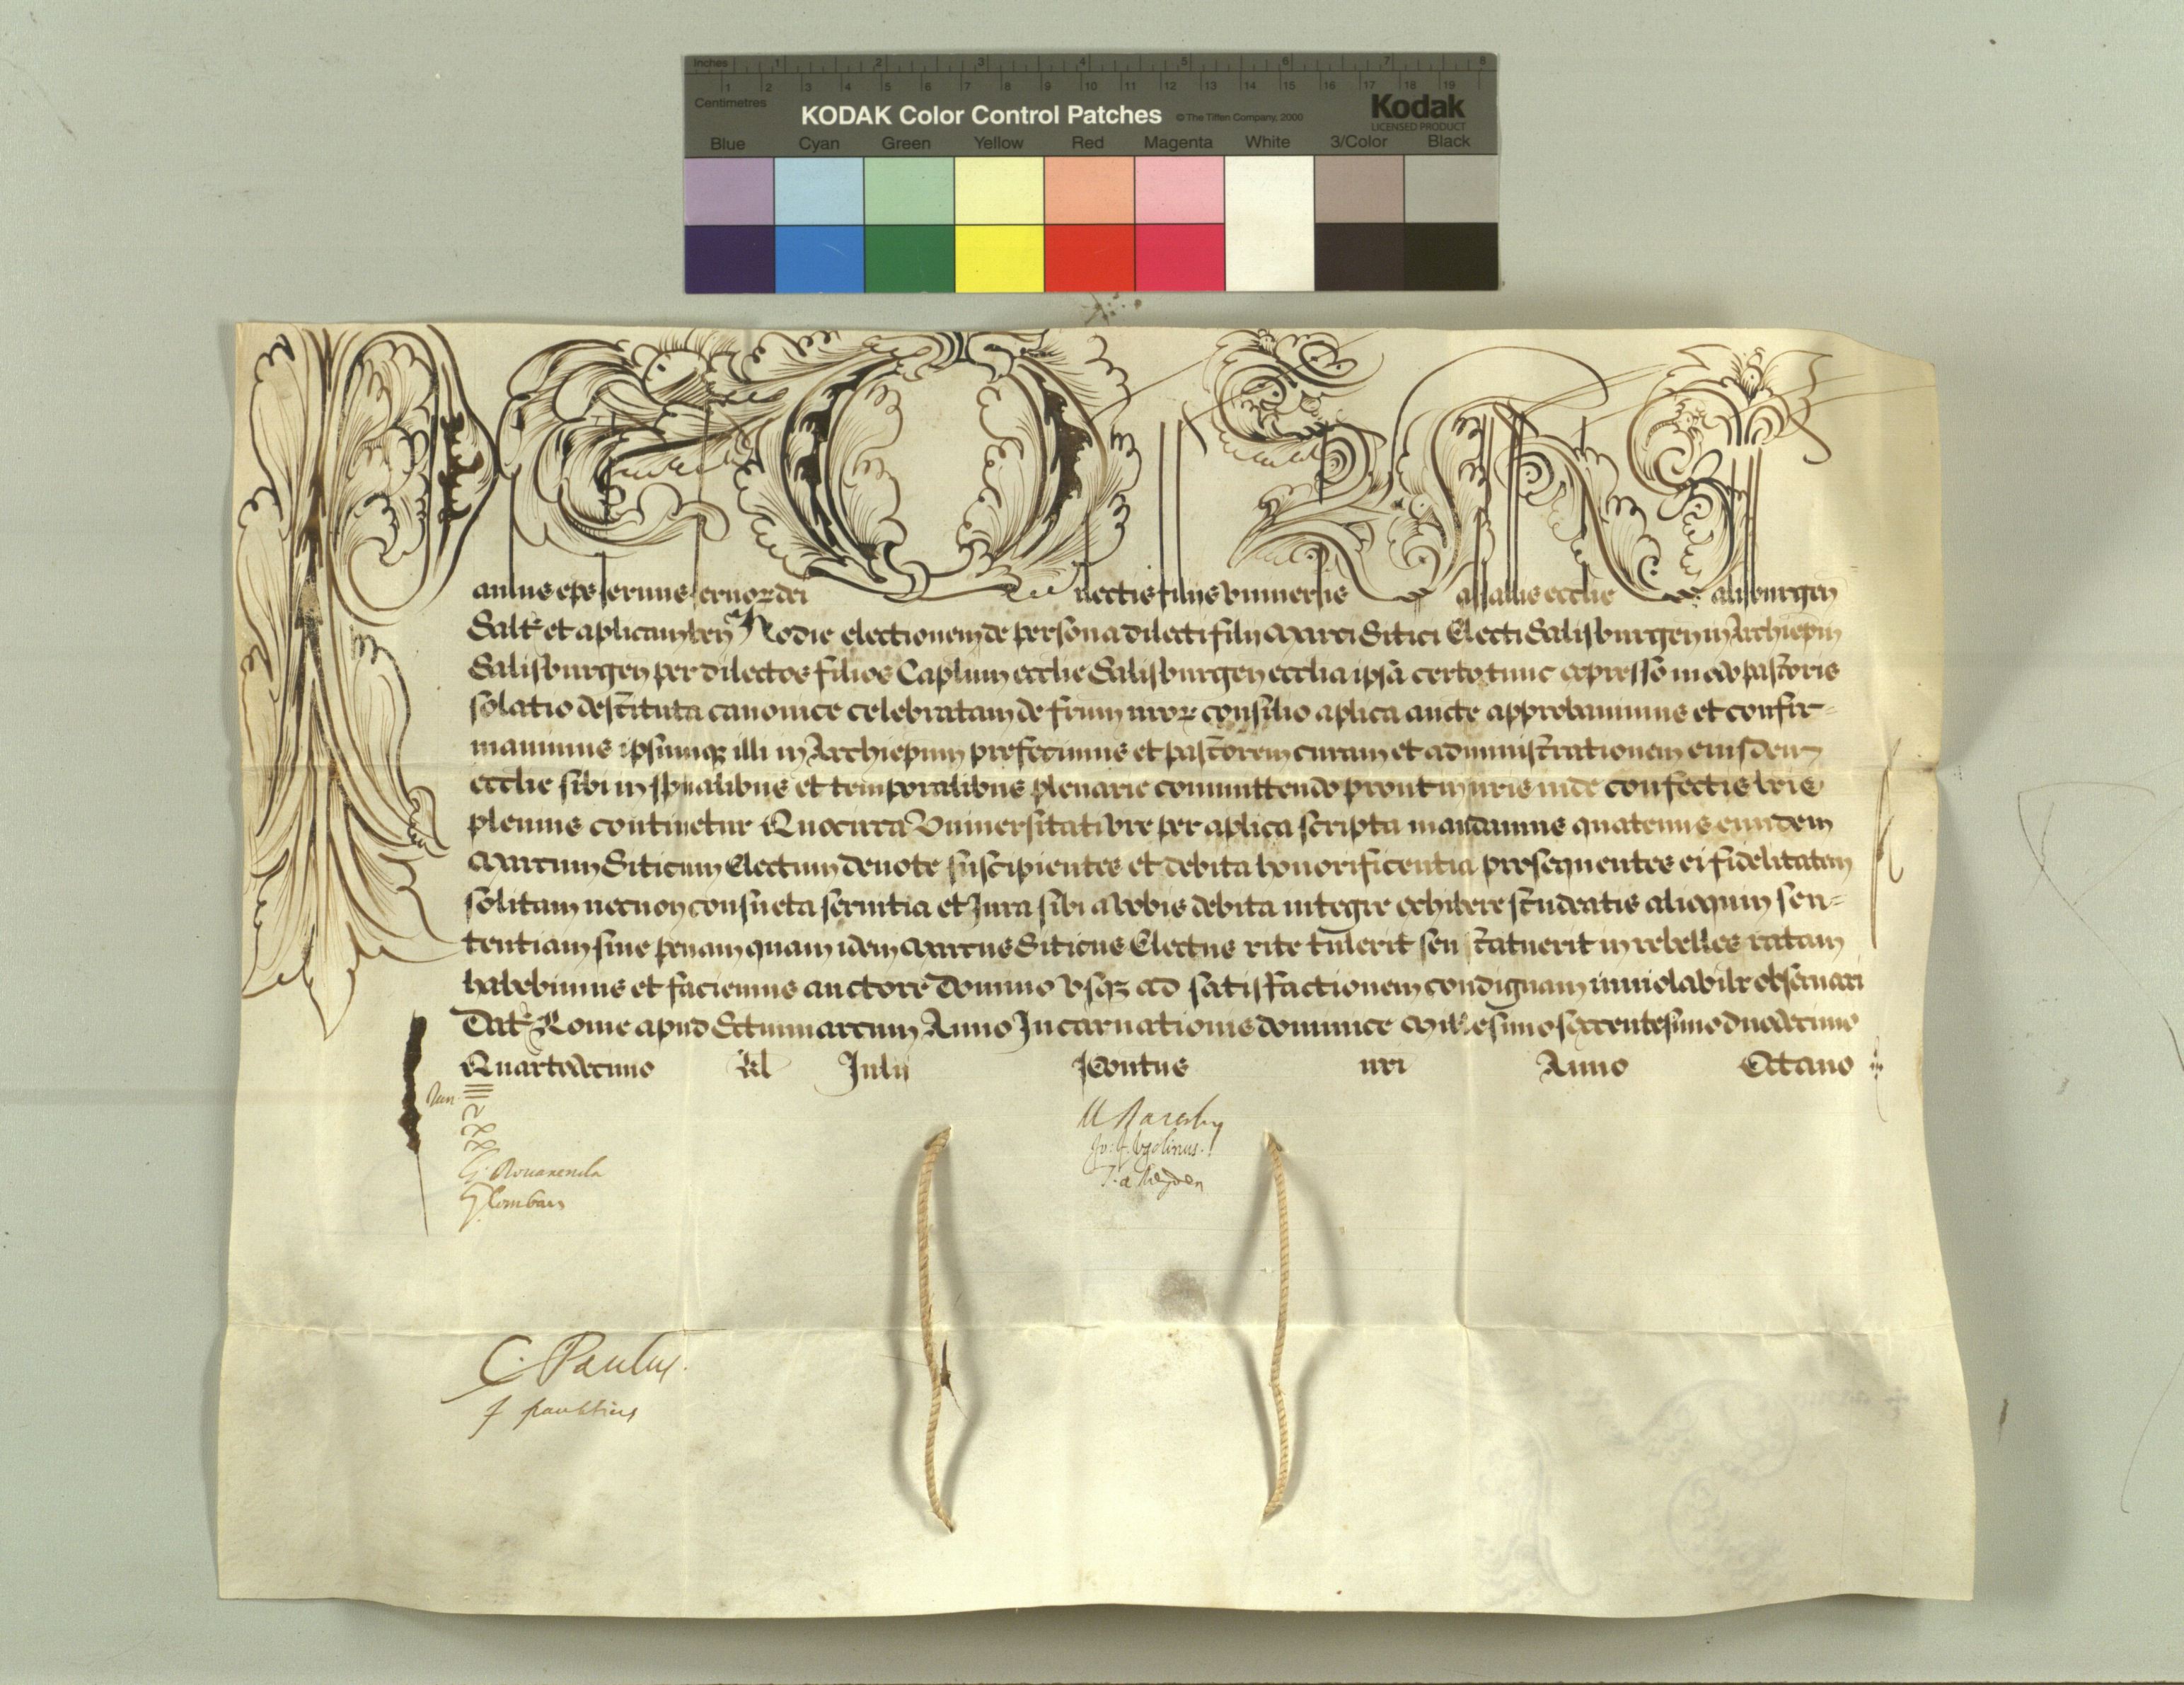 Inches 1 2 3 4 5 6 7 8
1 2 3 4 5 6 7 8 9 10 11 12 13 14 15 16 17 18 19
Centimetres
KODAK Color Control Patches © The Tiffen Company, 2000 Kodak
LICENSED PRODUCT
Blue Cyan Green Yellow Red Magenta White 3/Color Black
Paulus eps seruus seruoꝝ dei Dilectis filiis Vniuersis Vassallis ecclie Salisburgen
Salt et aplicam ben Hodie electionem de persona dilecti filii Marci Sitici Electi Salisburgen in Archiepm
Salisburgen per dilectos filios Caplum ecclie Salisburgen ecclia ipsa certo tunc expresso modo pastoris
solatio destituta canonice celebratam de frum nroꝝ consilio aplica aucte approbauimus et confir=
mauimus ipsumqꝫ illi in Archiepum prefecimus et pastorem curam et administrationem eiusdem
ecclie sibi in spualibus et temporalibus plenarie committendo prout in nris inde confectis lris
plenius continetur Quocirca Vniuersitati vre per aplica scripta mandamus quatenus eundem
Marcum Siticum Electum deuote suscipientes et debita honorificentia prosequentes ei fidelitatem
solitam necnon consueta seruitia et Jura sibi a vobis debita integre exhibere studeatis alioquin sen=
tentiam siue penam quam idem Marcus Siticus Electus rite tulerit seu statuerit in rebelles ratam
habebimus et faciemus auctore Domino vsqꝫ ad satisfactionem condignam inuiolabilr obseruari
Dat Rome apud Sctummarcum Anno Incarnationis dominice Millesimosexcentesimoduodecimo
Quartodecimo kl Julii Pontus nri Anno Octauo
Jo: f. Vgolinus.
C. Paulus.